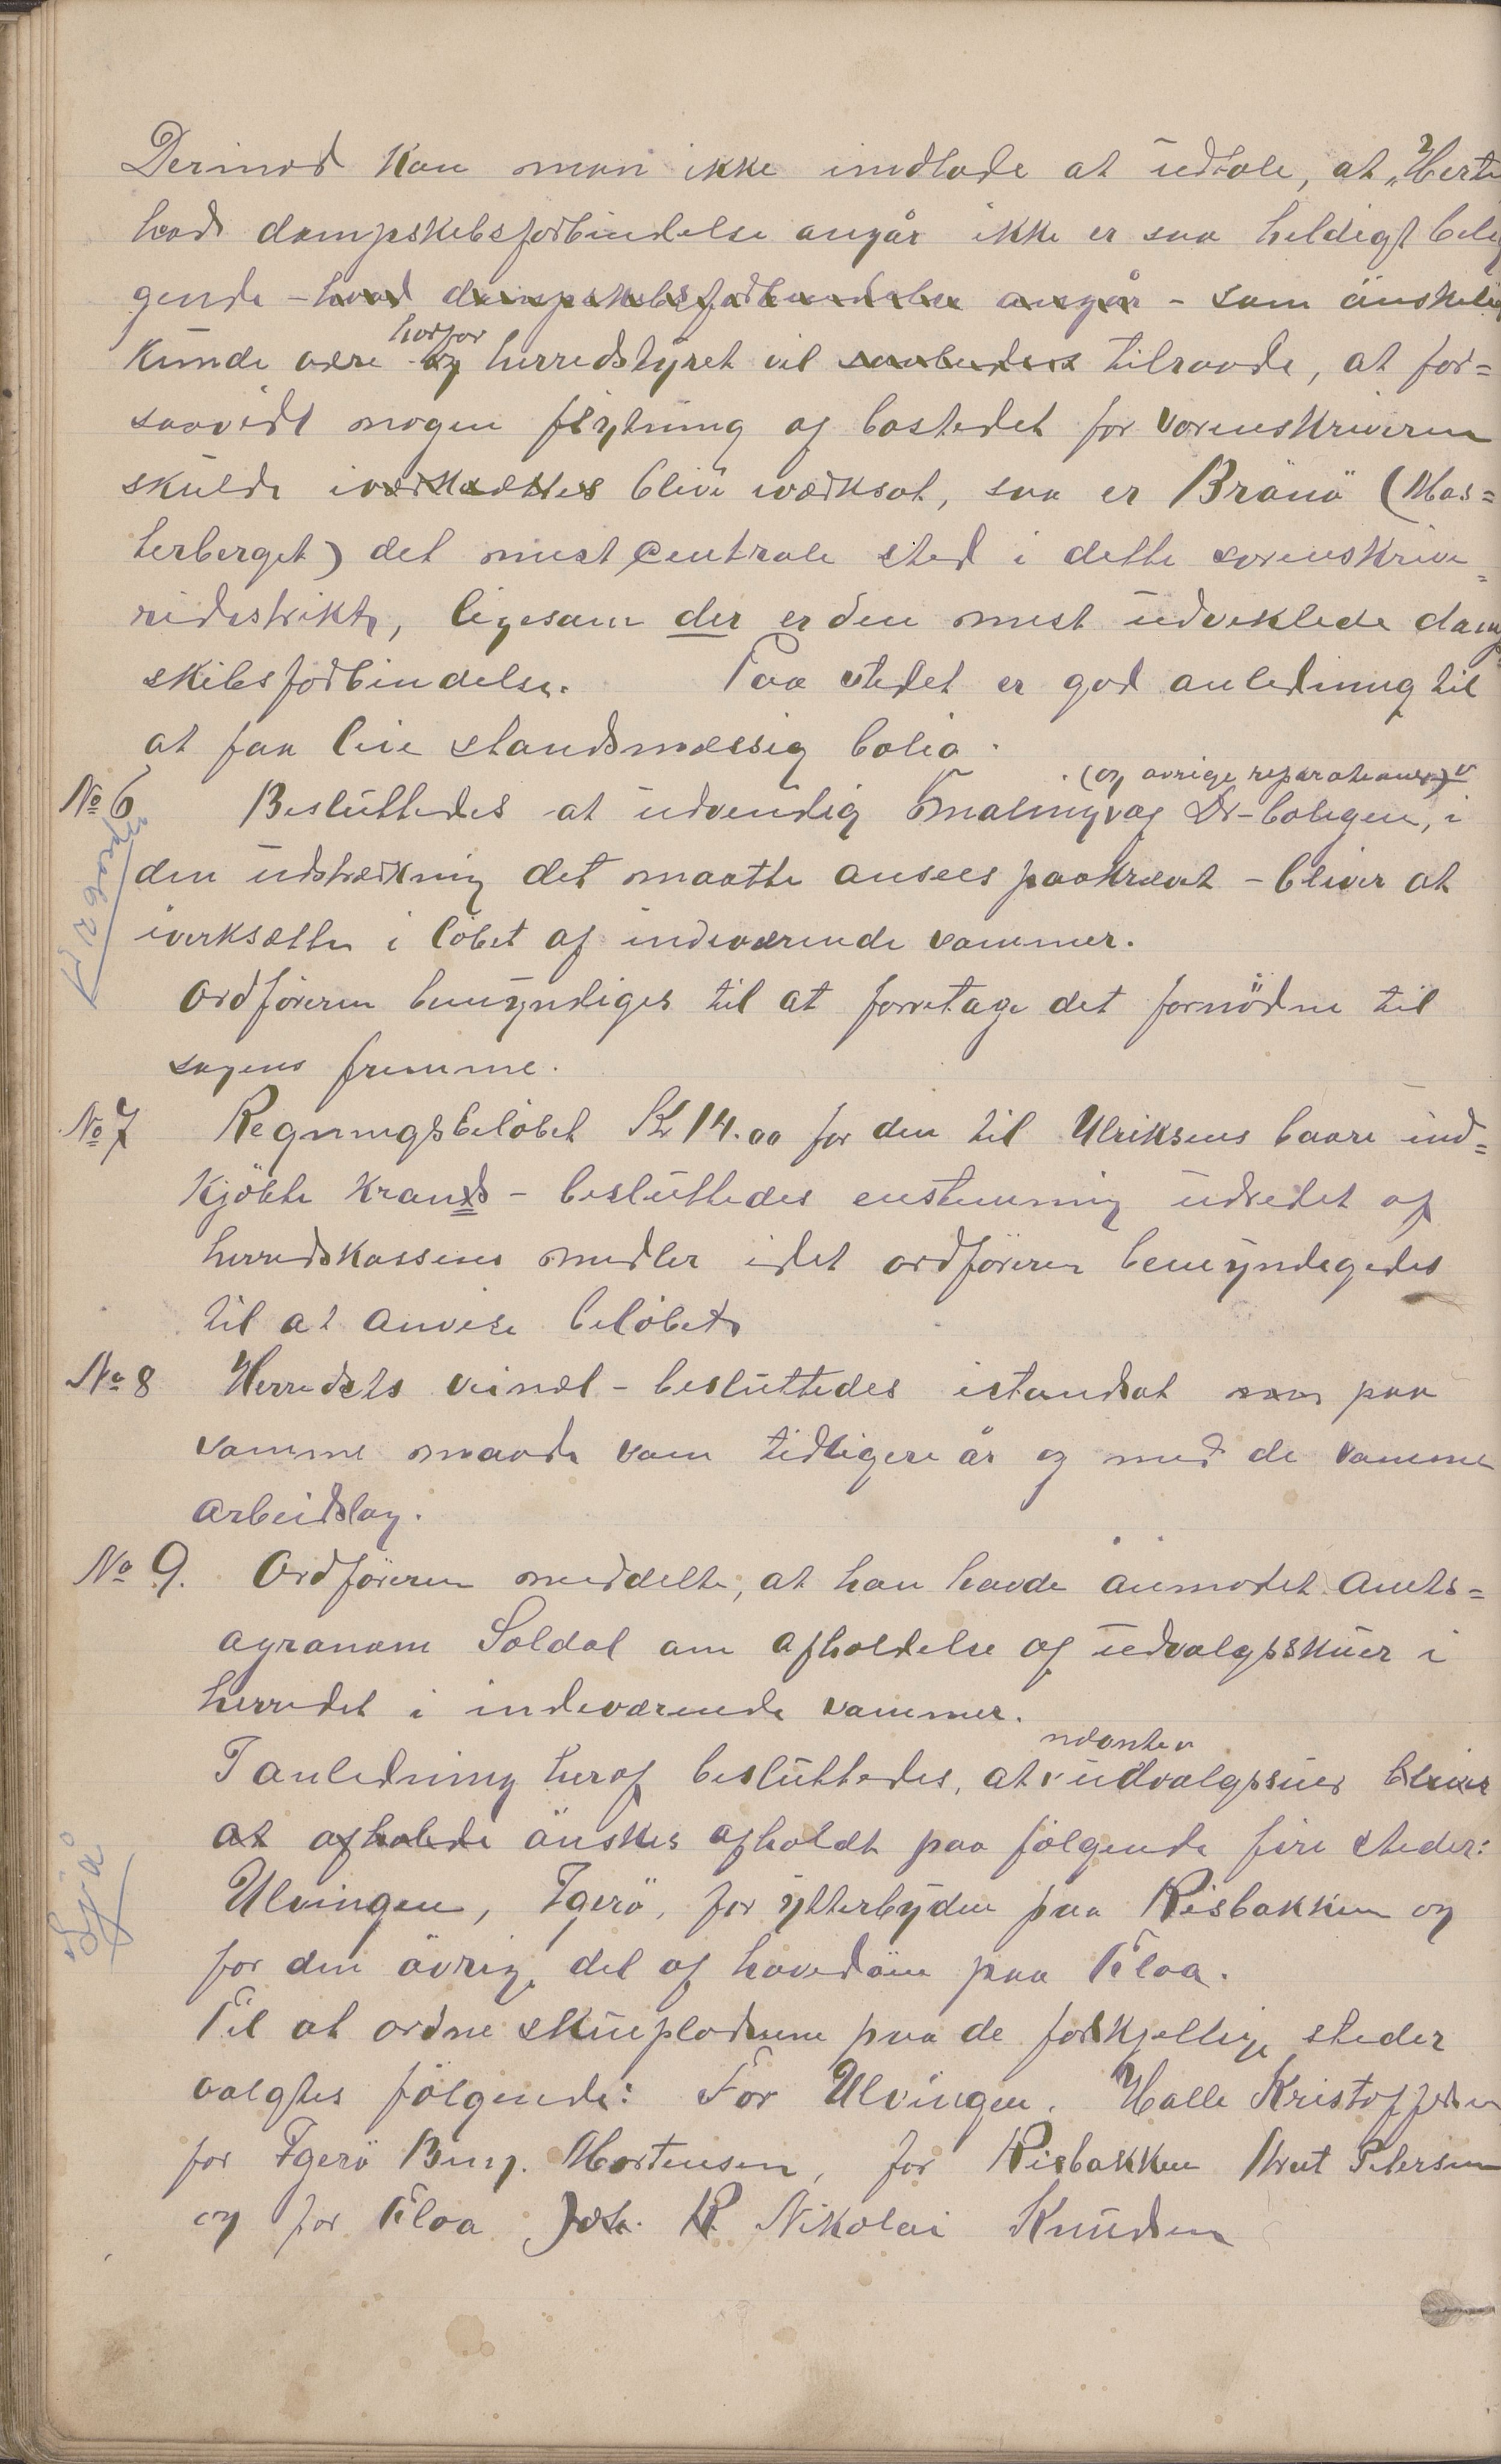 Derimod kan man ikke indlade at udtale, at „Herte
hvad dampskibsforbindelse angår ikke er saa heldigt belig
gende - hvad dampskibsforbindelse angår - som ønskelig
hvorfor
kunde være og herredstyret vil saaledes tilraade, at for=
saavidt nogen flytning af bostedet for sorenskriveren
skulde iværksættes blive iværksat, saa er Brönö (Mos=
terberget) det mest centrale sted i dette sorenskrive=
ridistrikt, ligesom der er den mest udviklede damp
skibsforbindelse. Paa stedet er god anledning til
at faa leie standsmæssig bolig.
(og øvrige reparationer)
No 6 Besluttedes at udvendig maling af Dr-boligen, i
den udstrækning det maatte ansees paakrævet - bliver at
iverksætte i løbet af indeværende sommer.
Ordføreren bemyndiges til at foretage det fornödne til
sagens fremme.
No 7 Regningsbeløbet Kr 14.00 for den til Ulriksens baare ind=
kjöbte krands - besluttedes enstemmig udredet af
herredskassens midler idet ordføreren bemyndigedes
til at anvise beløbet
No 8 Herredets veinæt - besluttedes istandsat som paa
samme maade som tidligere år og med de samme
arbeidslag.
No 9. Ordføreren meddelte, at han havde anmodet amts=
agronom Soldal om afholdelse af udvalgsskuer i
herredet i indeværende sommer.
I anledning heraf besluttedes, at udvalgssuer bliver
at afholde önskes afholdt paa følgende fire steder:
Ulvingen, Igerö, for ytterbyden paa Risbakken og
for den övrige del af hovedöen paa Floa.
Til at ordne skuepladsene paa de forskjellige steder
valgtes følgende: For Ulvingen. Halle Kristoffersen
for Igerö Benj. Mortensen, for Risbakken Petersen
og for Floa Joh. P. Nikolai Knudsen